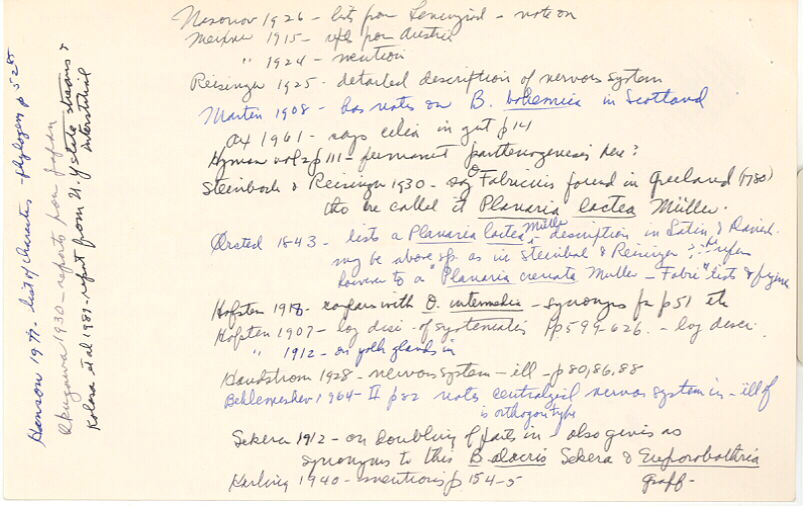 Nasonov 1926 - lists from Leningrad - note on
Meixner 1915 - repts from Austria
" 1924 - mention
Reisinger 1925 - detailed description of nervous system
Martin 1908 - has notes on B. bohemica in Scotland
Ax 1961 - says cilia in gut p 14
Hyman vol 2 p 111 - permanent parthenogenesis here?
Steinbock & Reisinger 1930 - say O Fabricius found in Greenland (1780)
tho he called it Planaria lactea Müller.
Ørsted 1843 - lists a Planaria lactea Müller - description in Latin & Danish.
may be above sp. as in Steinbock & Reisinger ? he refers
however to a "Planaria crenata Muller - Fabri" lists & figure
Hofsten 1918 - compares with O. intermedia - synonyms for p 51 etc
Hofsten 1907 - long disc. of systematics pp 599-626. - long descr.
" 1912 - on yolk glands in
Handstrom 1928 - nervous system - ill - p 80, 86, 88
Beklemeshev 1964 - II p 82 notes centralized nervous system in - ill of
is orthogon type
Sekera 1912 - on doubling of parts in - also gives as
synonyms to this B. alacris Sekera & Euporobothria
Graff -
Karling 1940 - mentions p 154-5
Hanson 1977 - list of characters - phylogeny p 525
Okugawa 1930 - reports from Japan
Kolasa et al 1987 - report from N.Y state streams &
interstitial